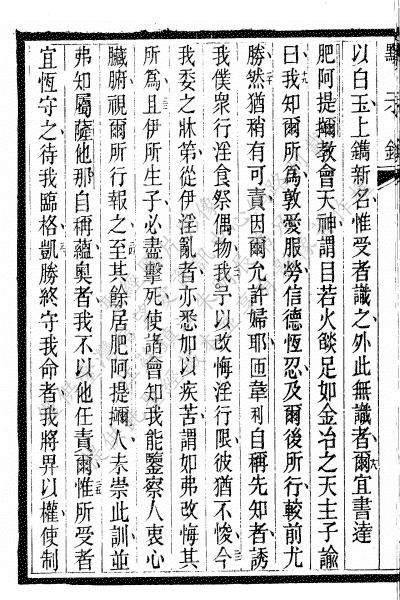 默示錄
以白玉上鐫新名惟受者識之外此無識者爾宜書達
肥阿提彌教會天神謂目若火燄足如金冶之天主子諭
曰我知爾所為敦愛服勞信德恆忍及爾後所行較前尤
勝然猶稍有可責因爾允許婦耶匝韋利自稱先知者誘
我僕衆行淫食祭偶物我予以改悔淫行限彼猶不悛今
我委之牀第從伊淫亂者亦悉加以疾苦謂如弗改悔其
所為且伊所生子必盡擊死使諸會知我能鑒察人衷心
臟腑視爾所行報之至其餘居肥阿提彌人未崇此訓並
弗知屬薩他那自稱蘊奧者我不以他任責爾惟所受者
宜恆守之待我臨格凱勝終守我命者我將畀以權使制